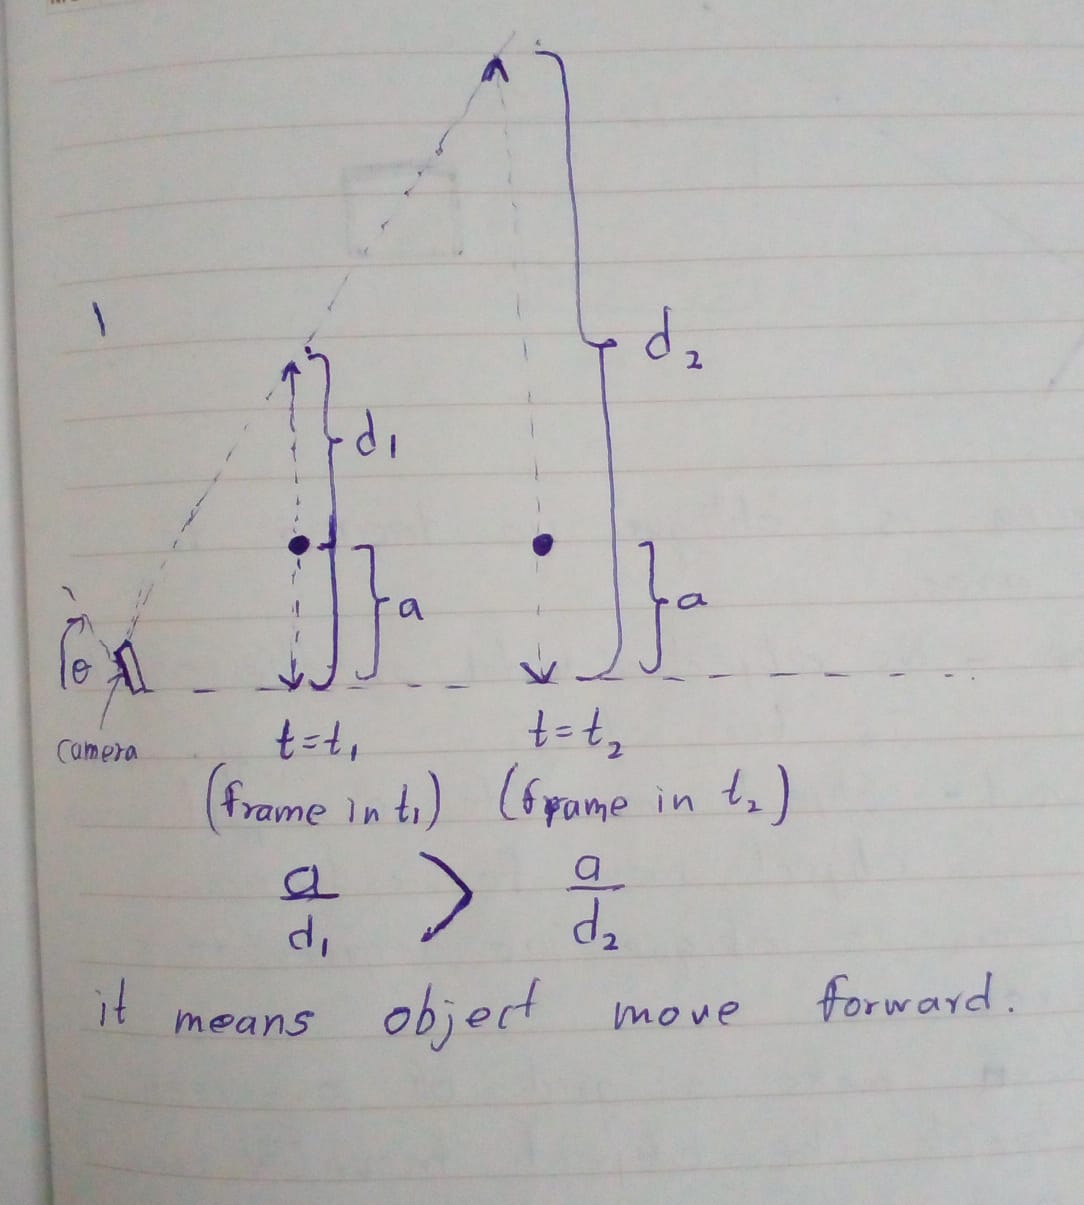 d₂
d₁
a
a
θ
camera
t=t₁
t=t₂
(frame in t₁)
(frame in t₂)
a/d₁ > a/d₂
it means object move forward.